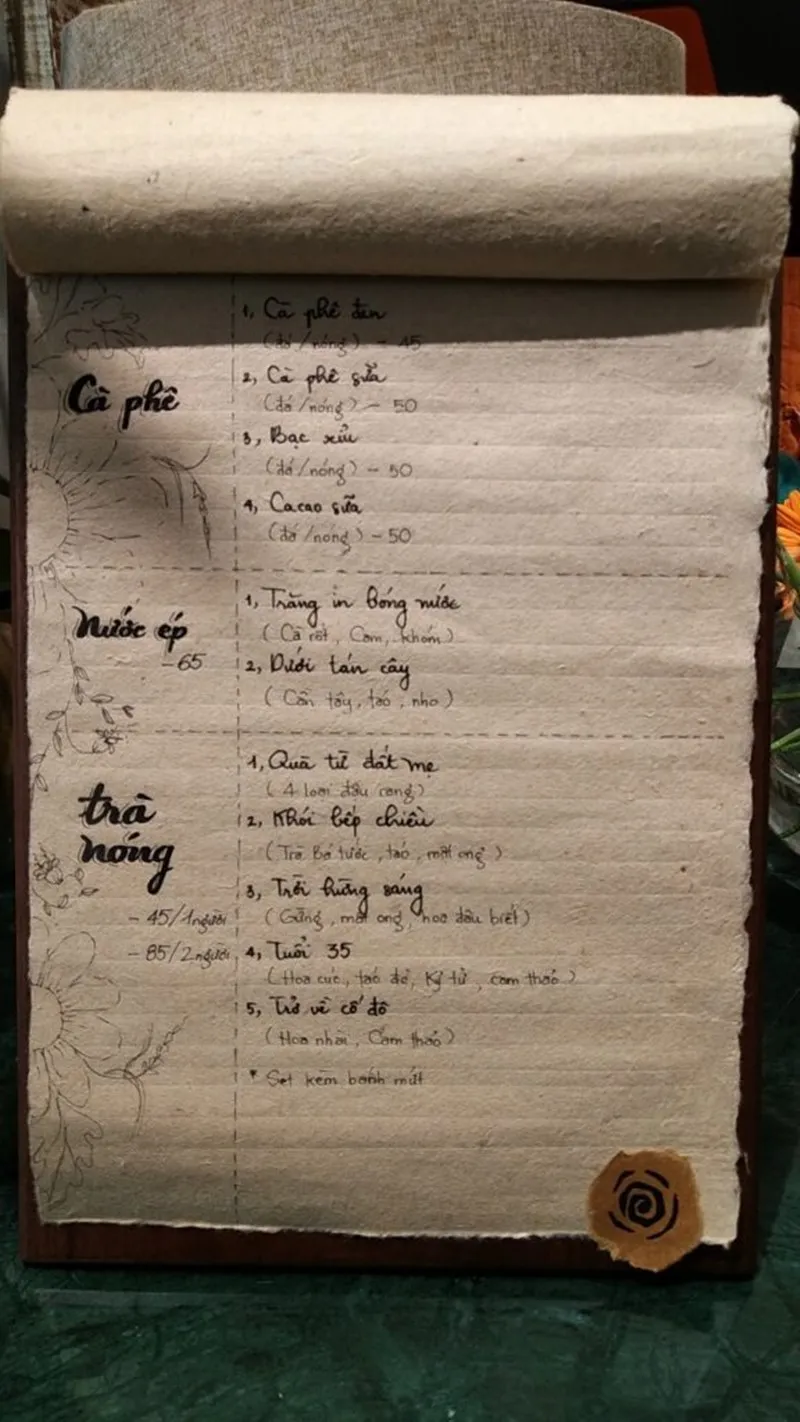 Cà phê
1, Cà phê đen
(đá/nóng) - 45
2, Cà phê sữa
(đá/nóng) - 50
3, Bạc xỉu
(đá/nóng) - 50
4, Cacao sữa
(đá/nóng) - 50
Nước ép
- 65
1, Trăng in bóng nước
(Cà rốt, Cam, khóm)
2, Dưới tán cây
(Cần tây, táo, nho)
trà
nóng
- 45/1 người
- 85/2 người
1, Quà từ đất mẹ
(4 loại đậu rang)
2, Khói bếp chiều
(Trà Bá tước, táo, mật ong)
3, Trời hừng sáng
(Gừng, mật ong, hoa đậu biết)
4, Tuổi 35
(Hoa cúc, táo đỏ, Kỷ tử, cam thảo)
5, Trở về cố đô
(Hoa nhài, Cam thảo)
* Set kèm bánh mứt